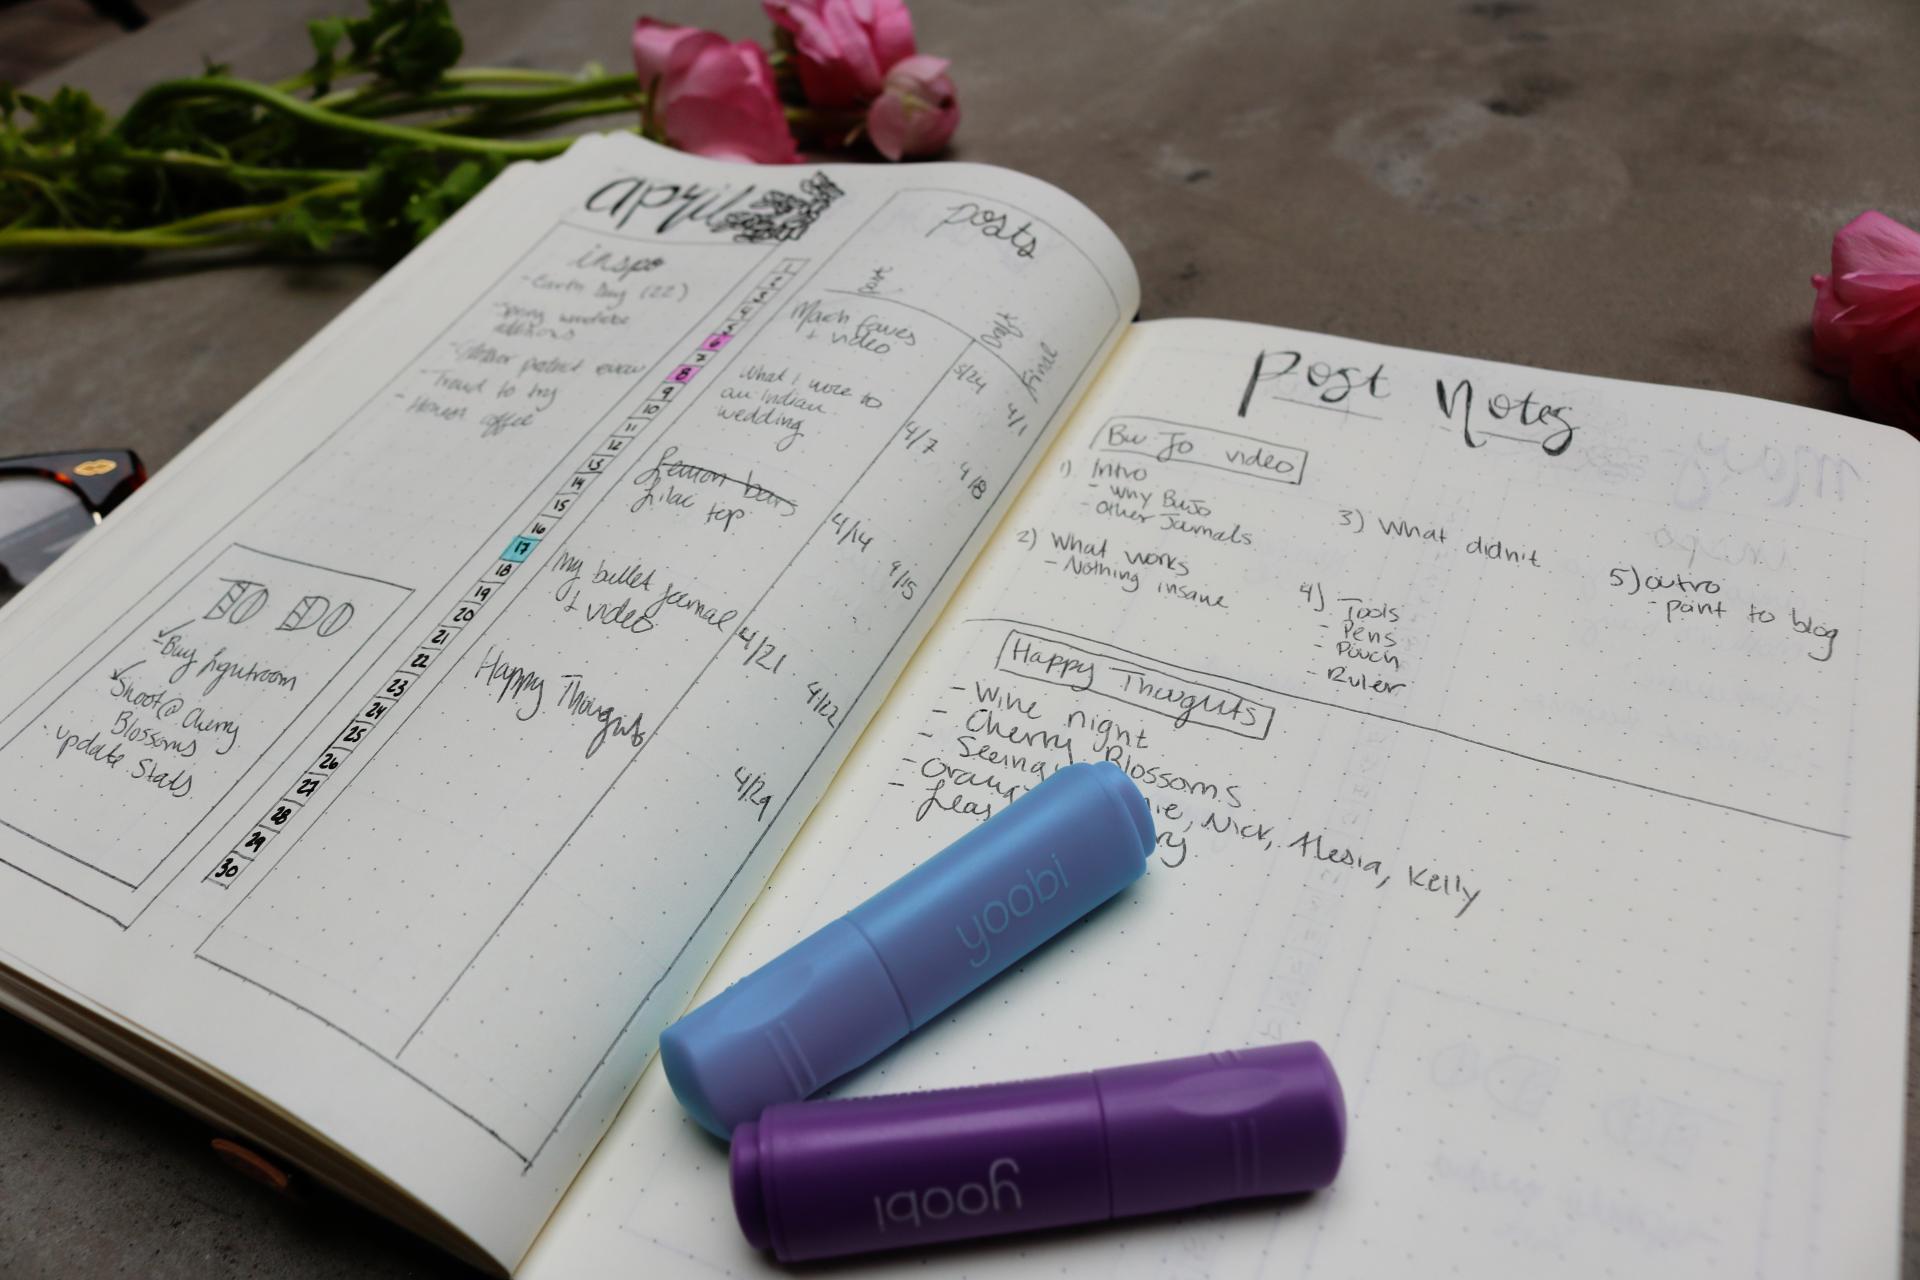 april
inspo
- Earth Day (22)
- Spring wardrobe
additions
- product review
- Trend to try
- coffee
TO DO
- Buy lightroom
- Shoot @ Cherry
Blossoms
- update Stats
6
7
8
9
10
11
12
13
14
15
16
17
18
19
20
21
22
23
24
25
26
27
28
29
30
posts
post
Final
March faves
+ video
3/24
4/1
What I wore to
an indian
wedding
4/7
4/8
Lemon bars
Lilac top
4/14
4/15
My bullet journal
+ video
4/21
4/22
Happy Thoughts
4/29
Post Notes
Bu Jo video
1) Intro
- Why BuJo
- Other Journals
2) What works
- Nothing insane
3) What didn't
4) Tools
- Pens
- Pouch
- Ruler
5) outro
- point to blog
Happy Thoughts
- Wine night
- Cherry Blossoms
- Seeing
Nick, Alesia, Kelly
yoobi
yoobi
may
inspo